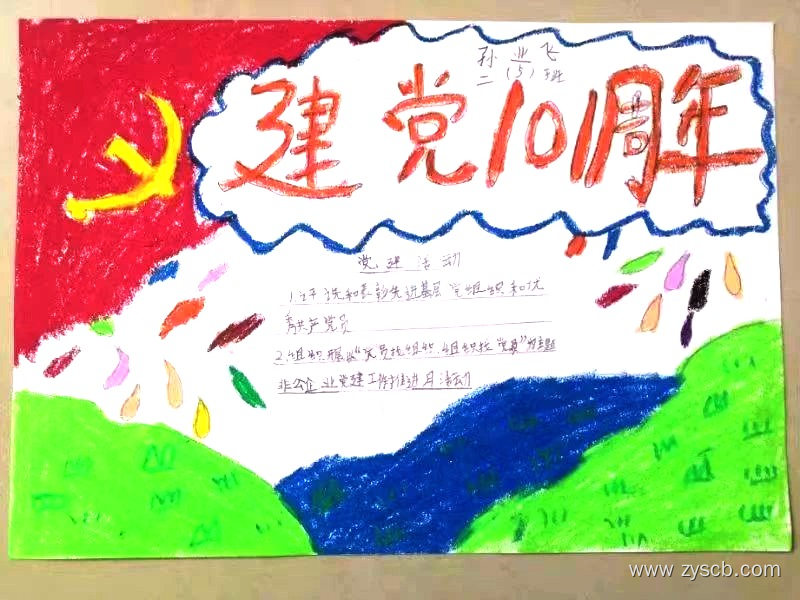 孙业飞
二(5)班
建党101周年
党建活动
1.评选和表彰先进基层党组织和优
秀共产党员
2.组织展以"党员找组织、组织找党员"为主题
非公企业党建工作推进月活动
www.zyscb.com